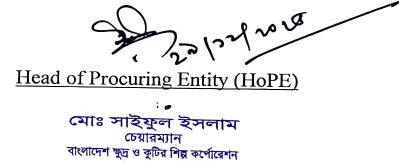 Head of Procuring Entity (HoPE)
মোঃ সাইফুল ইসলাম
চেয়ারম্যান
বাংলাদেশ ক্ষুদ্র ও কুটির শিল্প কর্পোরেশন